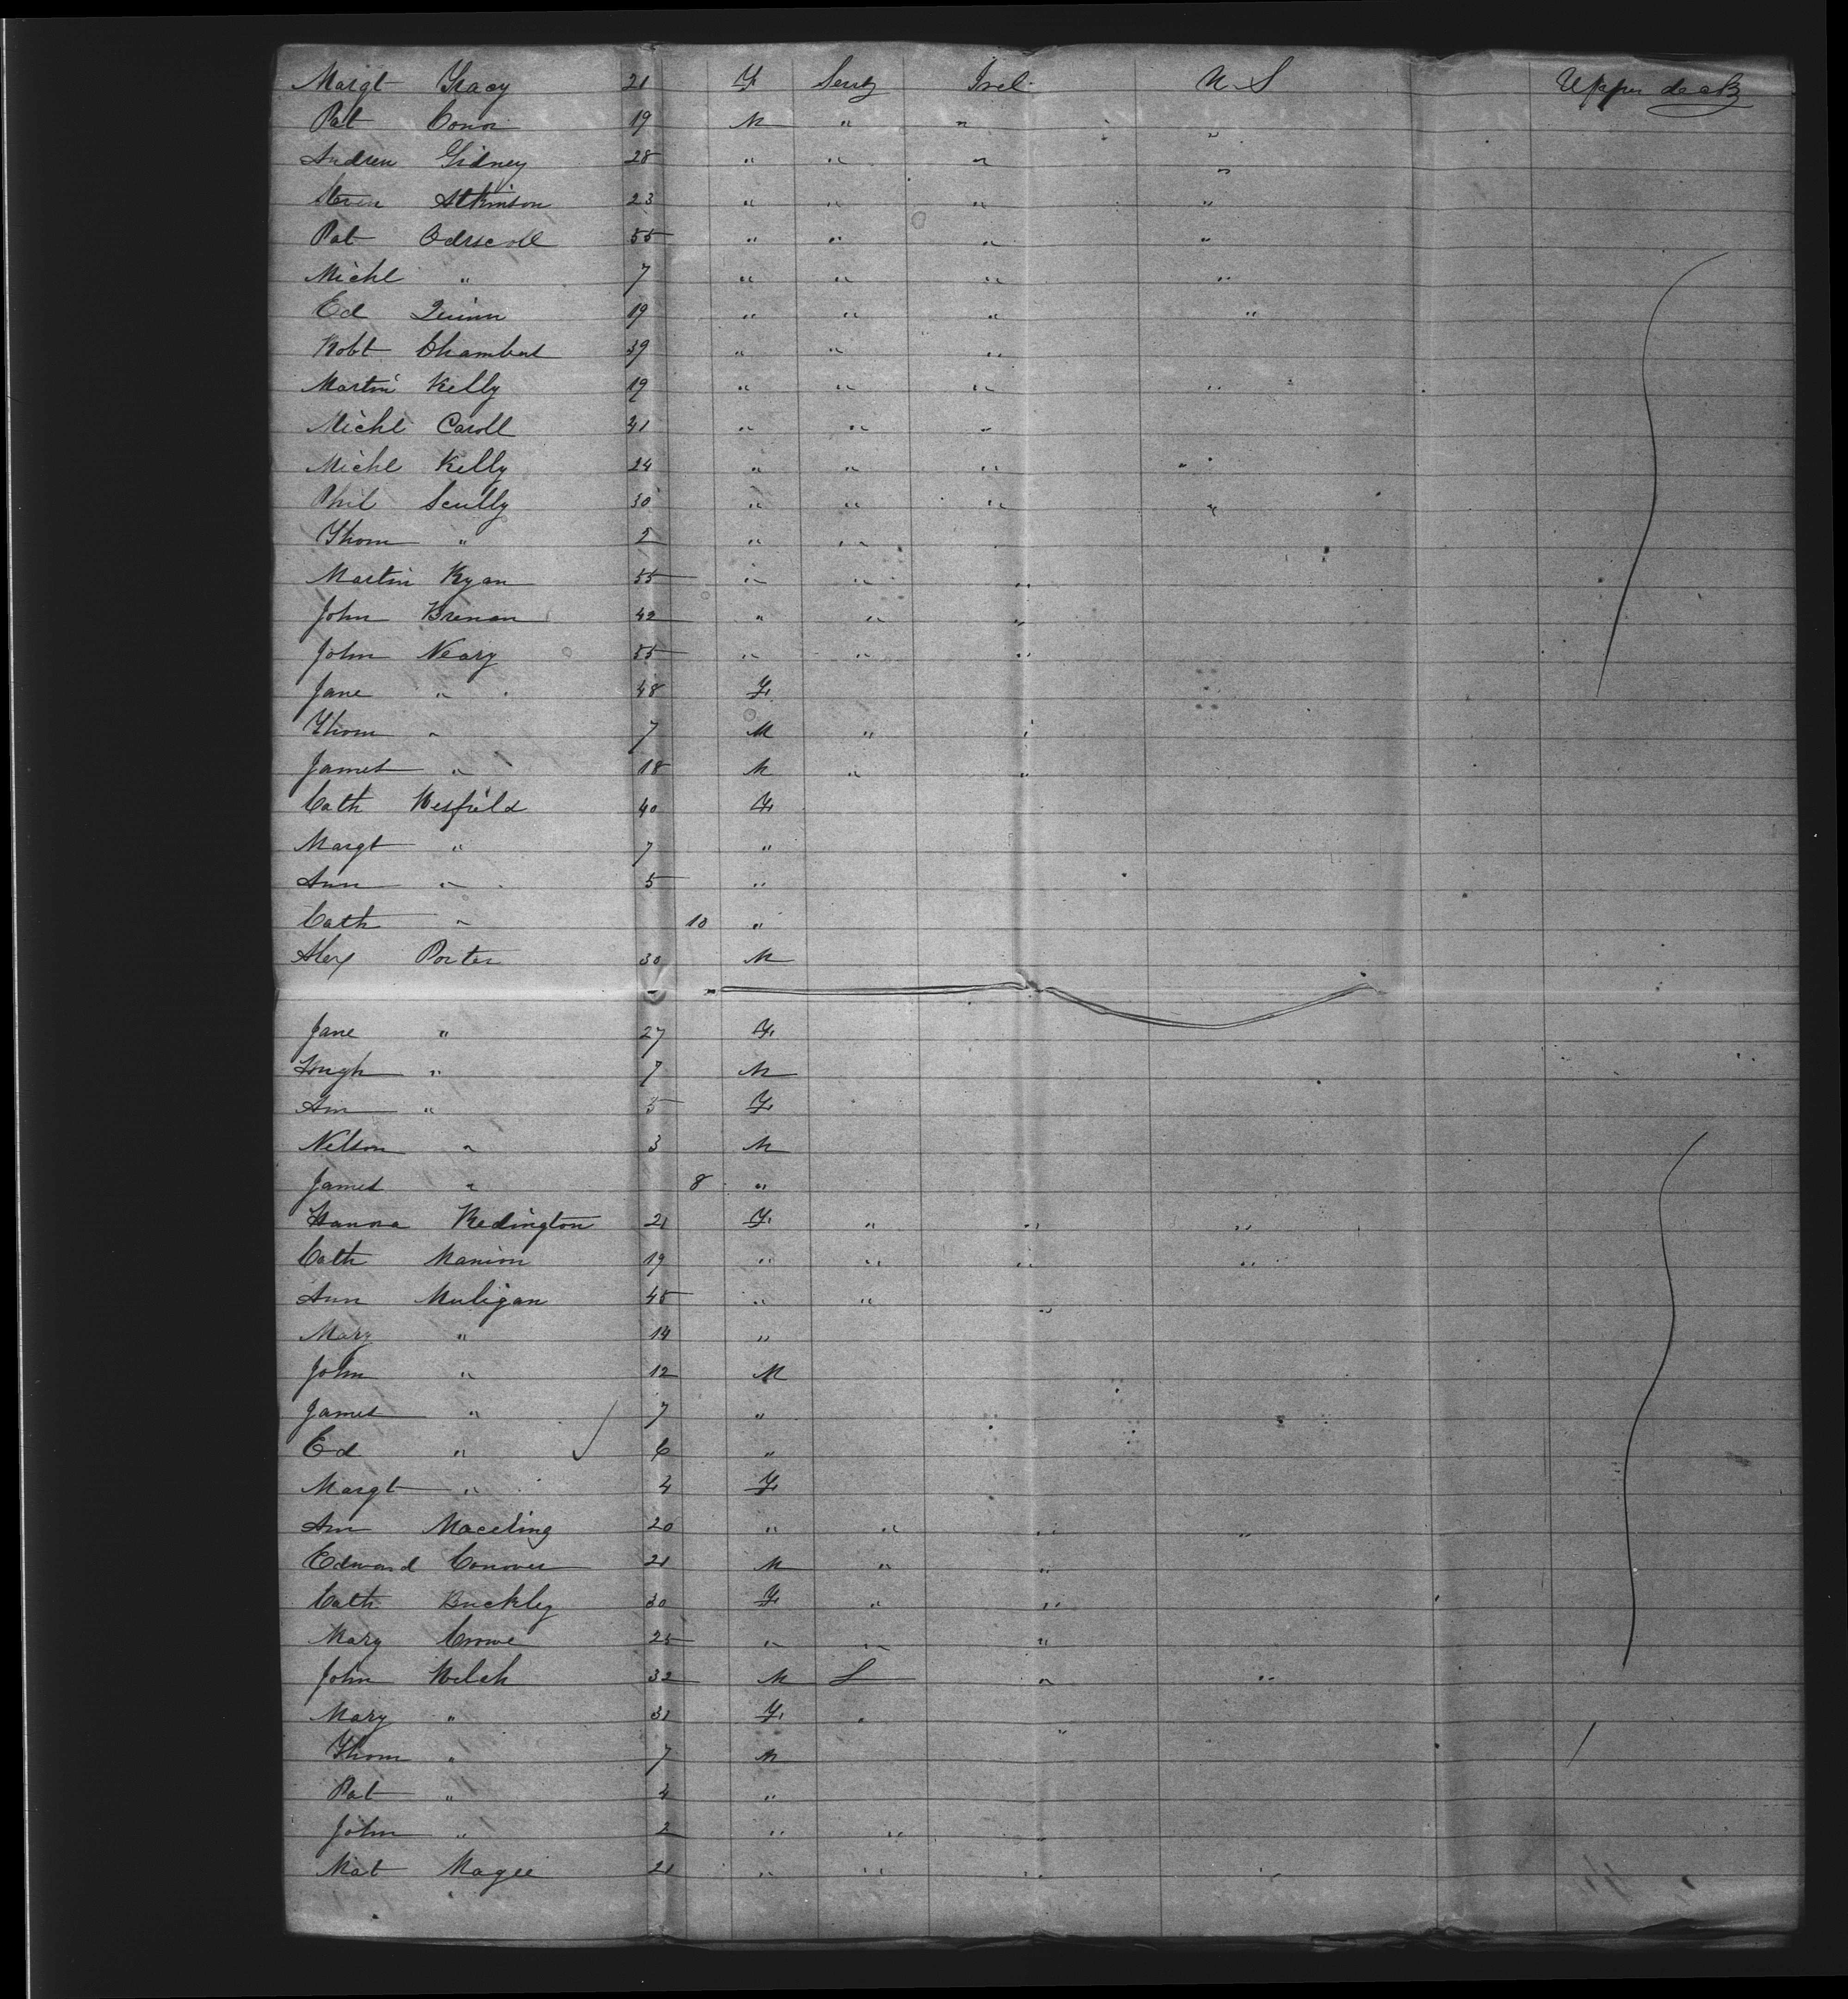 Margt Tracy 21 F Servt Irel U.S Upper deck
Pat Conor 19 M " " "
Andrew Gidney 28 " " " "
Steven Atkinson 23 " " " "
Pat Odriscoll 55 " " " "
Michl " 7 " " " "
Ed Quinn 19 " " " "
Robt Chambers 39 " " "
Martin Kelly 19 " " " "
Michl Caroll 41 " " "
Michl Kelly 24 " " " "
Phil Scully 30 " " " "
Thom " 2 " "
Martin Ryan 55 " " "
John Brenan 42 " " "
John Neary 55 " " "
Jane " 48 F
Thom " 7 M " "
James " 18 M " "
Cath Wesfield 40 F
Margt " 7 "
Ann " 5 "
Cath " 10 "
Alex Porter 30 M
Jane " 27 F
Hugh " 7 M
Ann " 5 F
Nelson " 3 M
James " 8 "
Hanora Redington 21 F " " "
Cath Manion 19 " " " "
Ann Muligan 45 " " "
Mary " 14 "
John " 12 M
James " 7 "
Ed " 6 "
Margt " 4 F
Ann 20 " " " "
Edward Conover 21 M " "
Cath Buckley 30 F " "
Mary Crowe 25 " " "
John Welch 32 M L " "
Mary " 31 F " "
Thom " 7 M
Pat " 4 "
John " 2 " " "
Mat Magee 21 " " " "